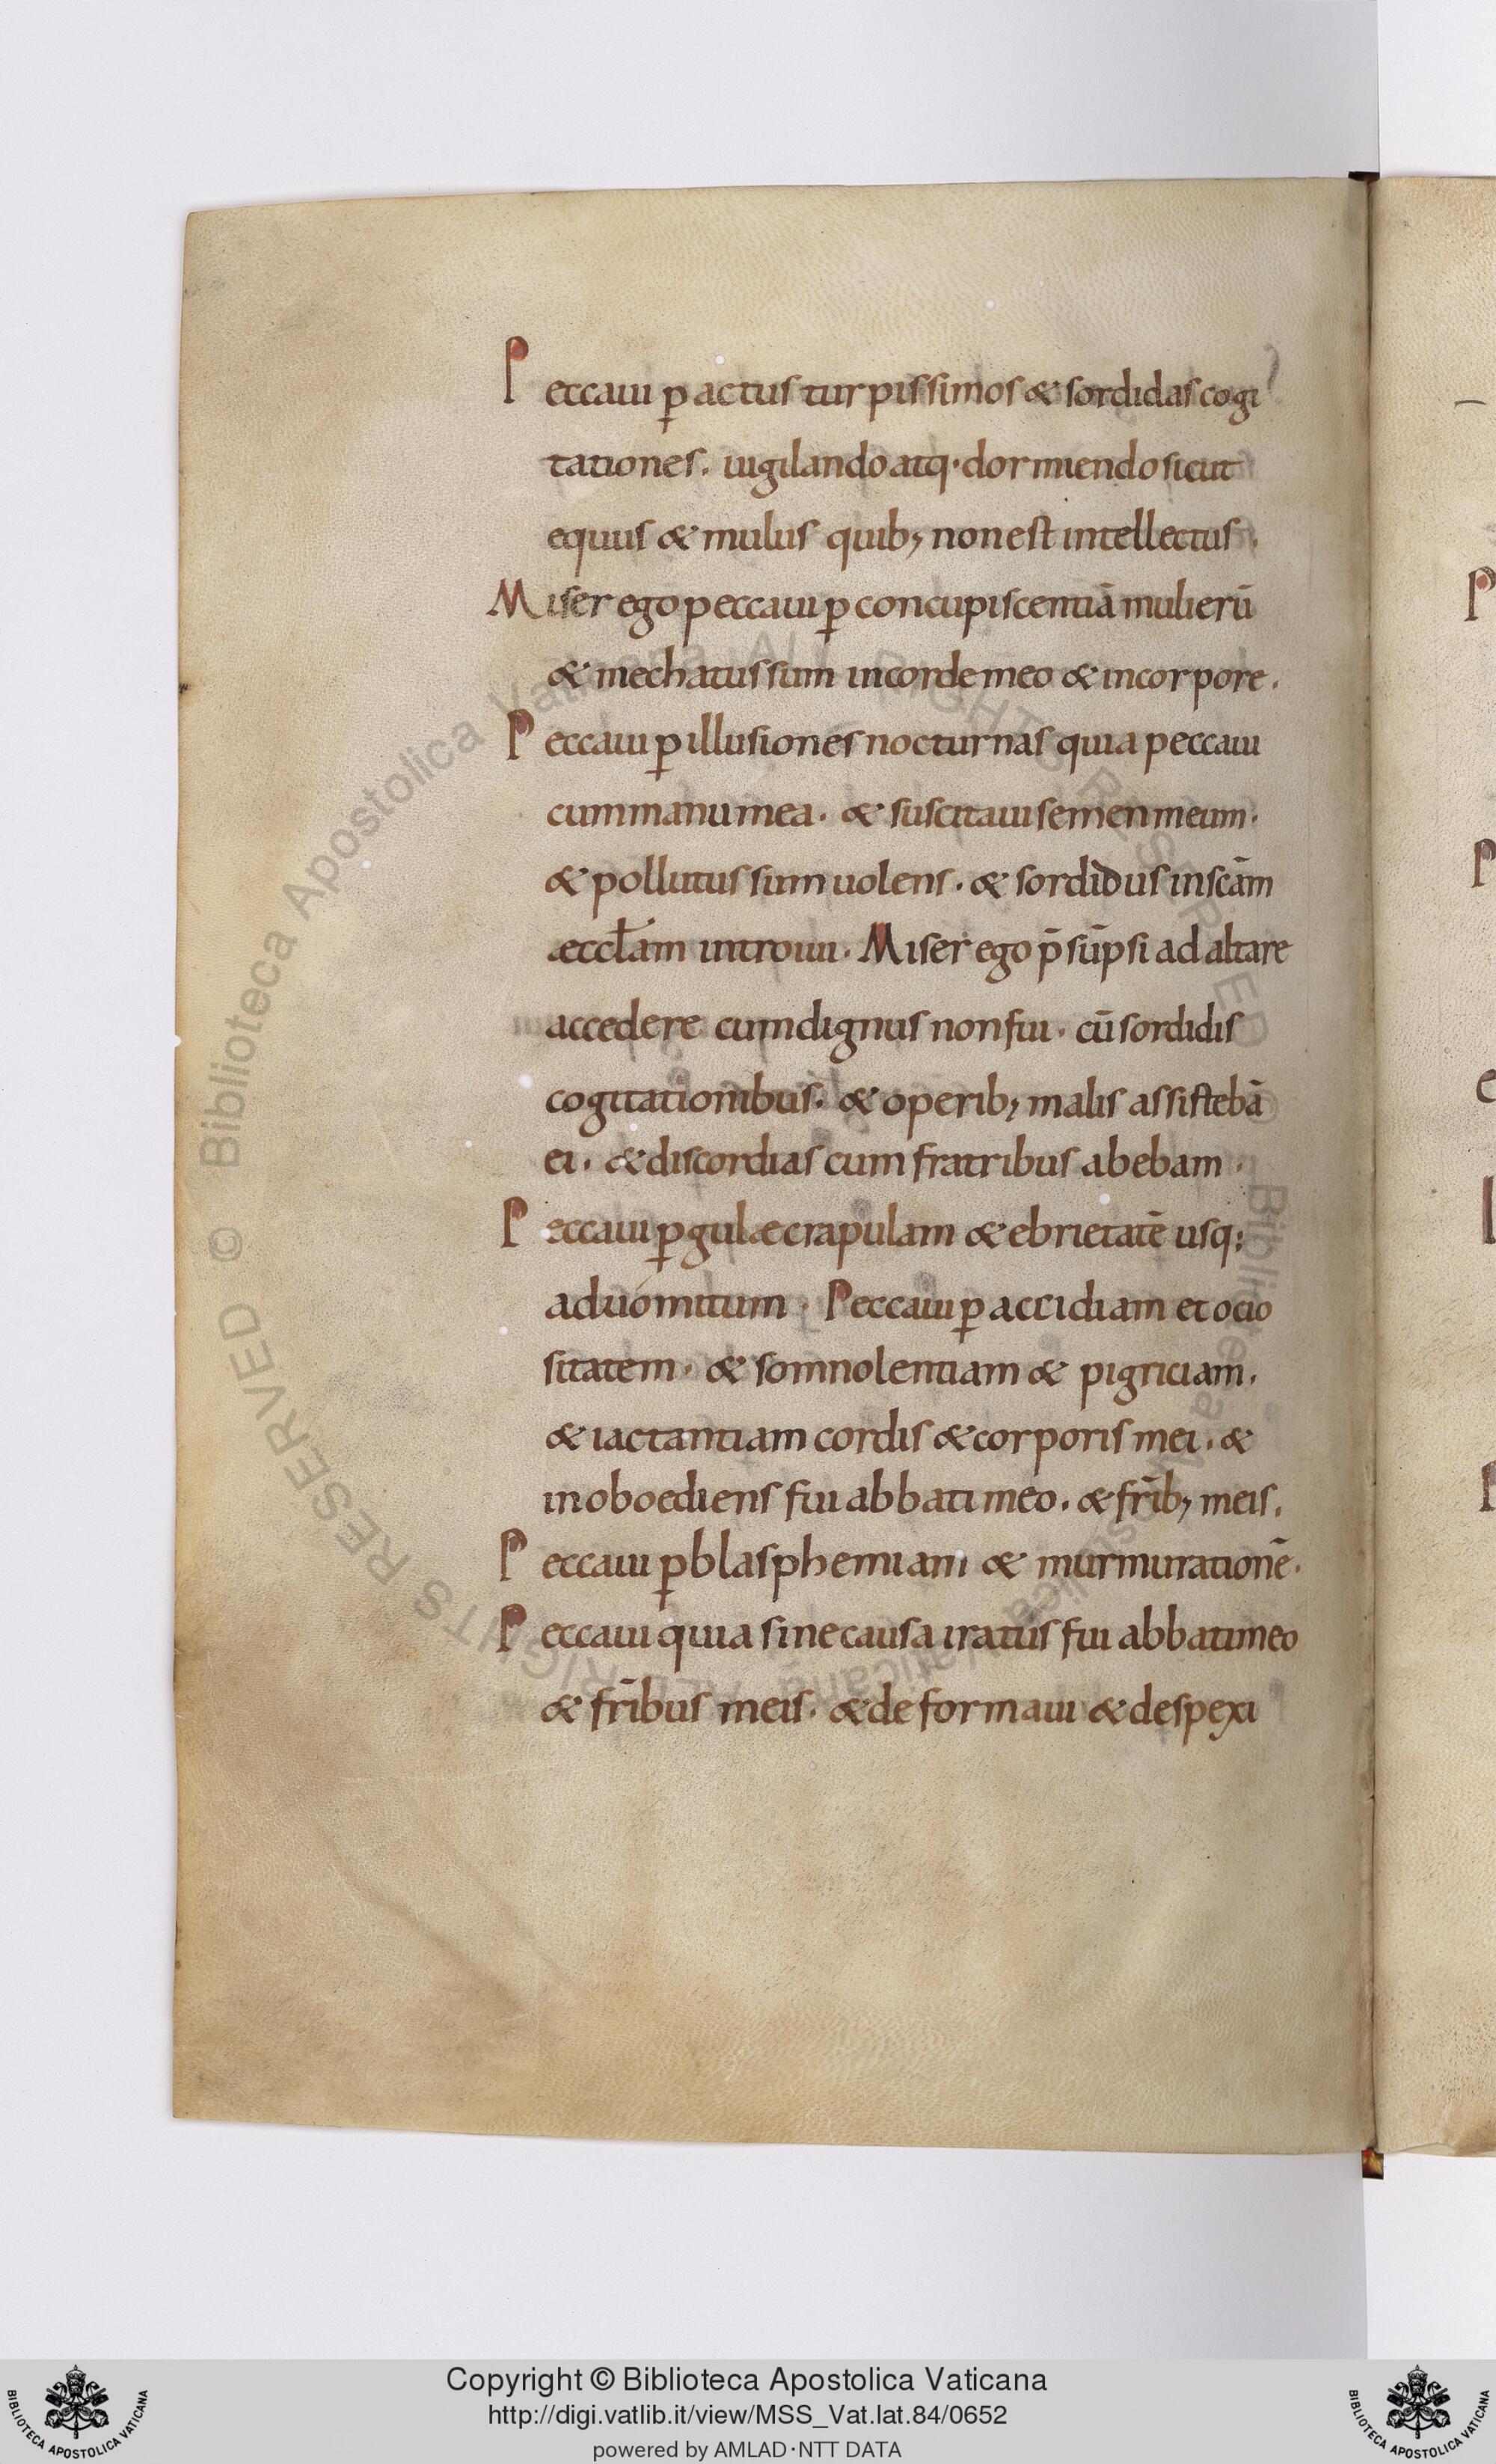 Peccaui ꝑ actus turpissimos & sordidas cogi
tationes. uigilando atq· dormiendo sicut
equus & mulus quib; non est intellectus.
Miser ego peccaui ꝑ concupiscentiā mulierū
& mechatus sum in corde meo & in corpore.
Peccaui ꝑ illusiones nocturnas quia peccaui
cum manu mea. & suscitaui semen meum.
& pollutus sum uolens. & sordidus in scām
æccłam introiui. Miser ego p̄sūpsi ad altare
accedere cum dignus non fui. cū sordidis
cogitationibus. & operib; malis assistebā
ei. & discordias cum fratribus abebam.
Peccaui ꝑ gulæ crapulam & ebrietatē usq;
ad uomitum. Peccaui ꝑ accidiam et ocio
sitatem. & somnolentiam & pigriciam.
& iactantiam cordis & corporis mei. &
inoboediens fui abbati meo. & fr̄ib; meis.
Peccaui ꝑ blasphemiam & murmurationē.
Peccaui quia sine causa iratus fui abbati meo
& fr̄ibus meis. & deformaui & despexi
Copyright © Biblioteca Apostolica Vaticana
http://digi.vatlib.it/view/MSS_Vat.lat.84/0652
powered by AMLAD·NTT DATA
BIBLIOTECA APOSTOLICA VATICANA
BIBLIOTECA APOSTOLICA VATICANA